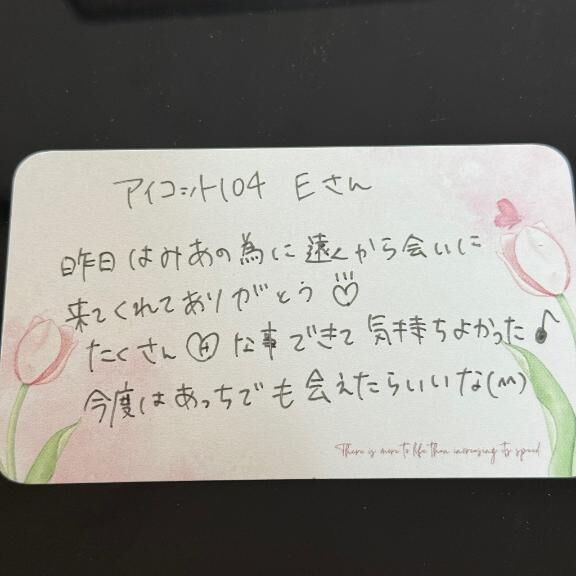 アイコット104 Eさん
昨日はみあの為に遠くから会いに
来てくれてありがとう♡
たくさんHな事できて気持ちよかった♪
今度はあっちでも会えたらいいな(^^)
There is more to life than increasing its speed